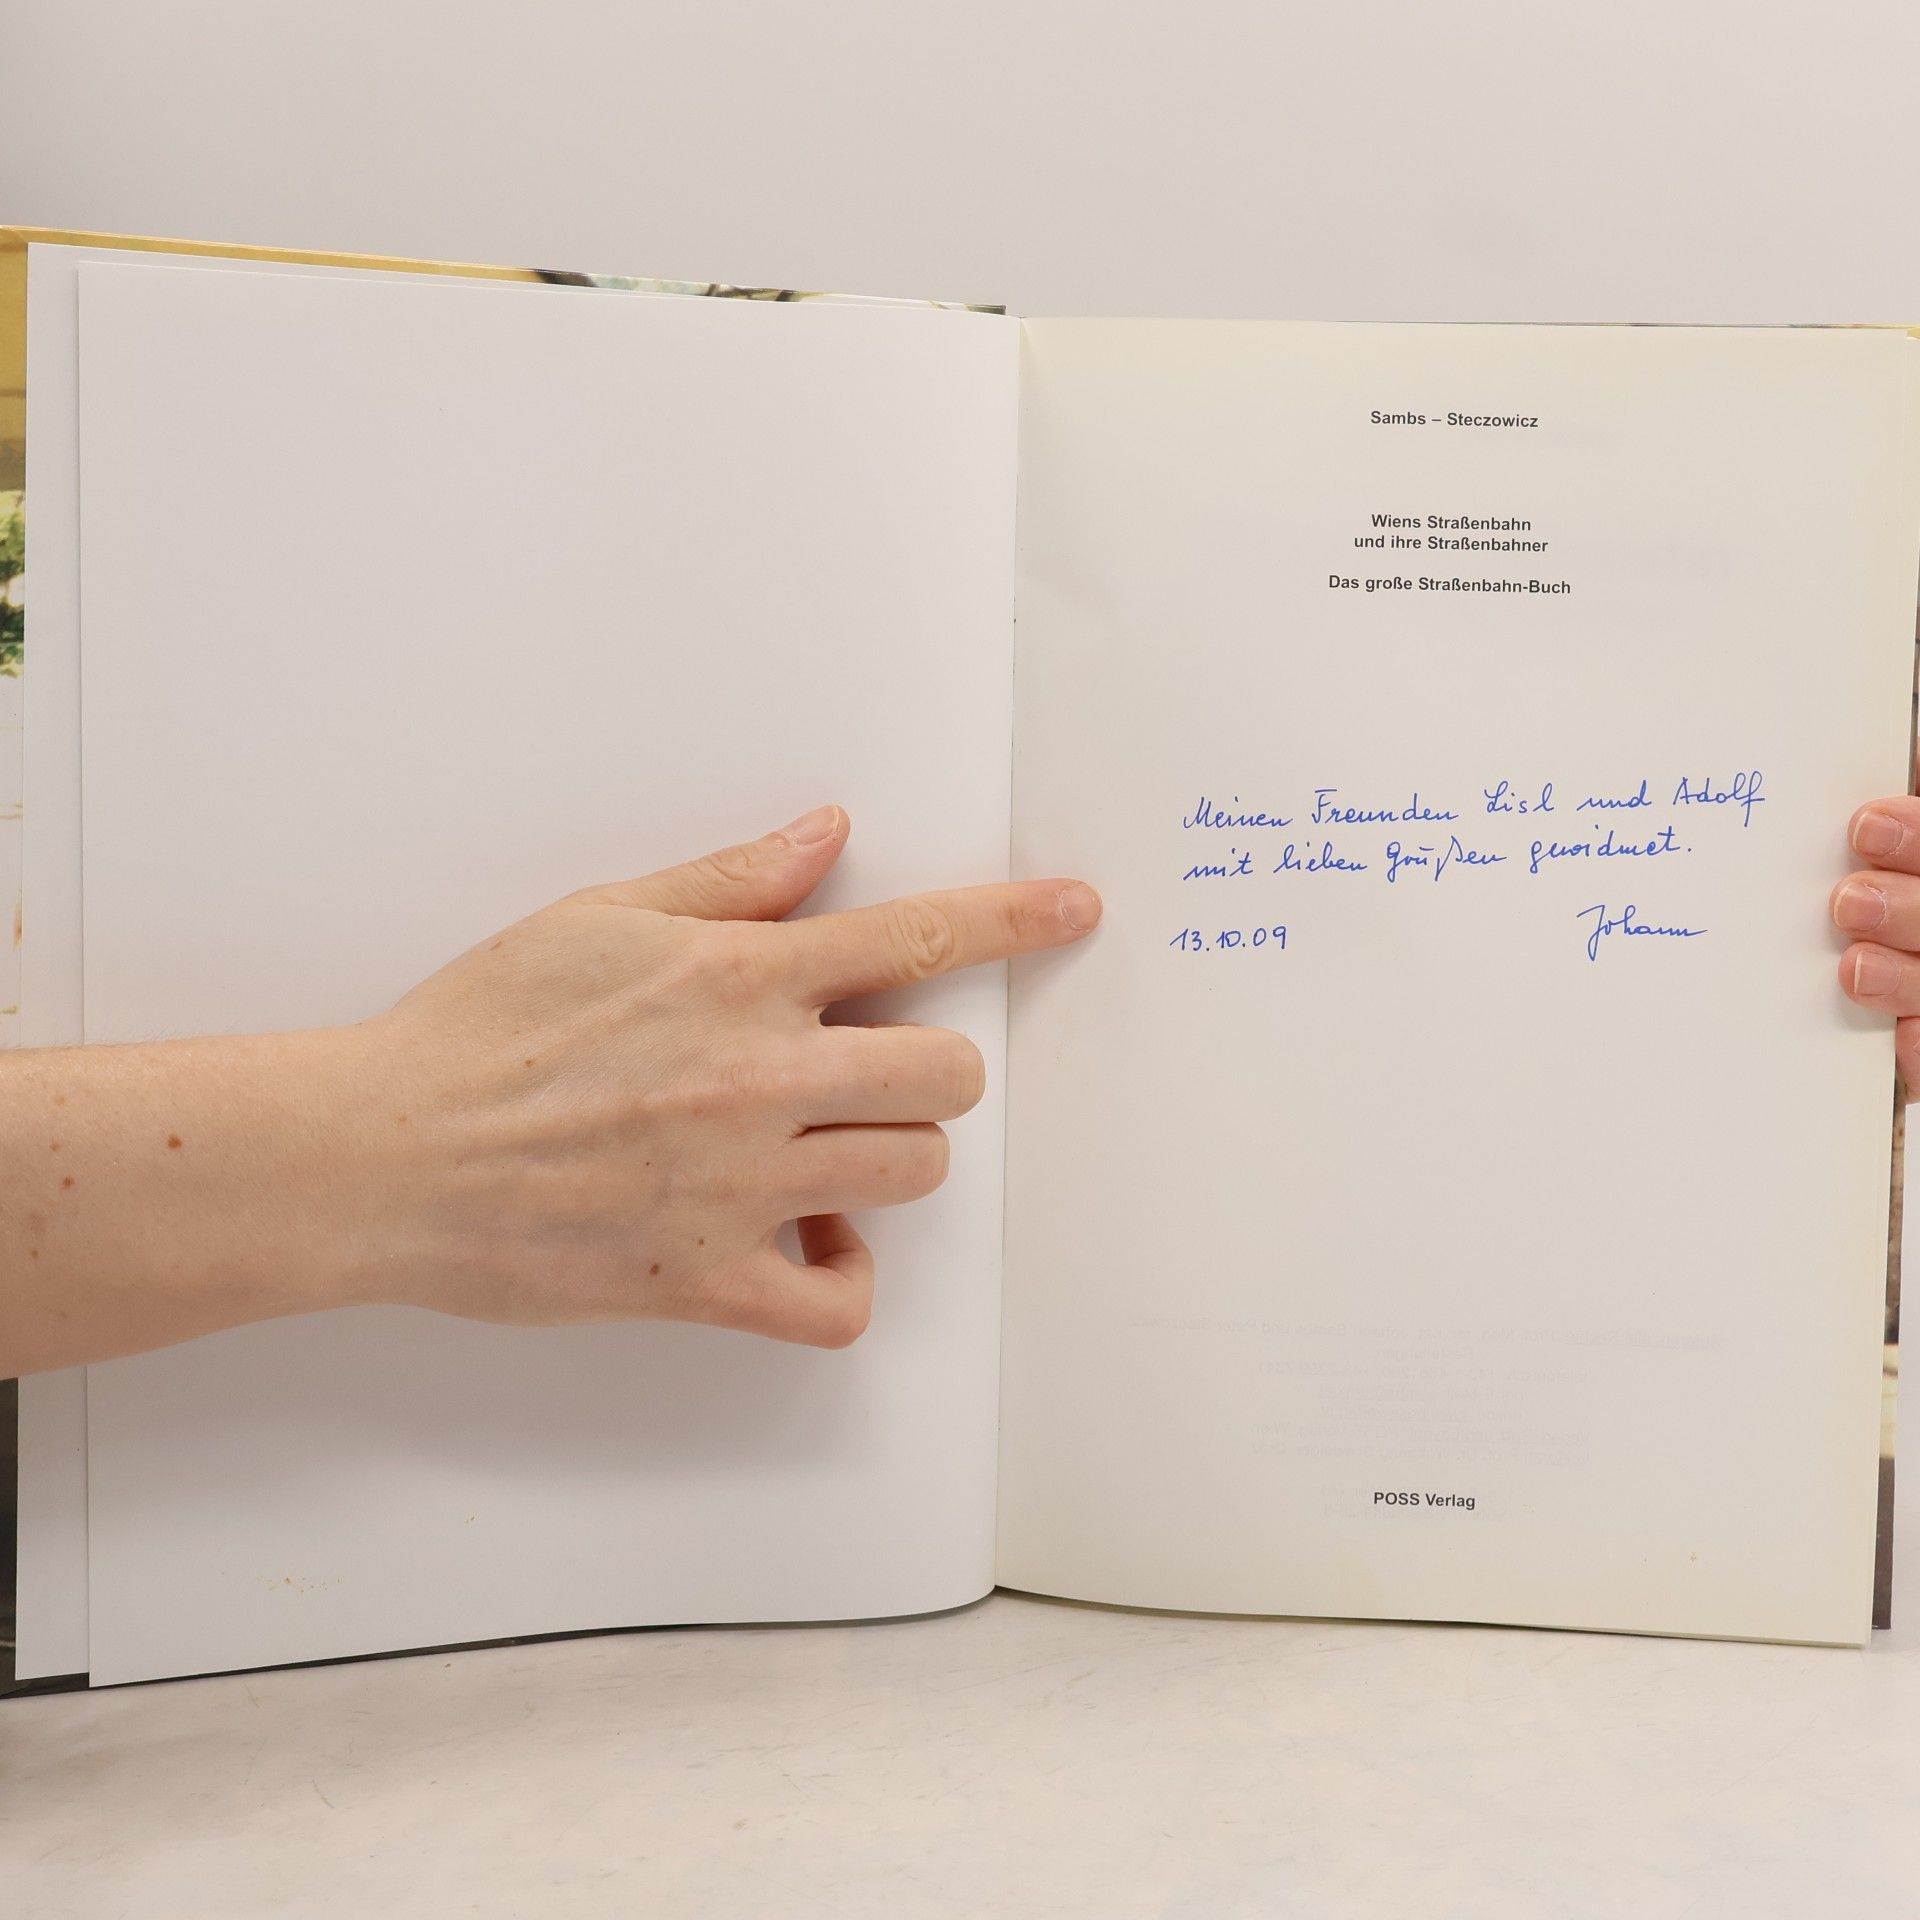 Sambs – Steczowicz
Wiens Straßenbahn
und ihre Straßenbahner
Das große Straßenbahn-Buch
Meinen Freunden Lisl und Adolf
mit lieben Grüßen gewidmet.
13.10.09 Johann
POSS Verlag